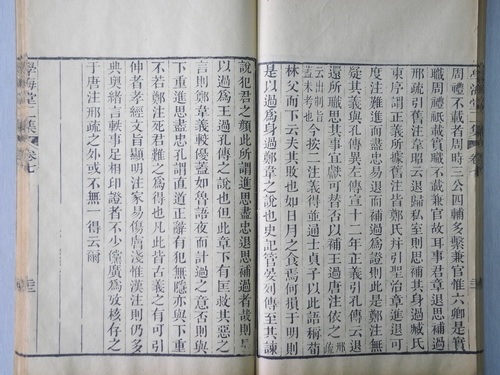 周禮不載者周時三公四輔多繫兼官惟六卿是實
職周禮祇載實職不載兼官故耳事君章退思補過
邢疏引舊注韋昭云退歸私室則思補其身過臧氏
東序謂正義所據舊注皆鄭氏并引聖治章進退可
度注難進而盡忠易退而補過爲證則此是鄭注無
疑其義與孔傳異左傳宣十二年正義引孔傳云退
還所職思其事宜獻可替否以補王過唐注依之邢
云出制旨
蓋未考也
今按二注義得並通士貞子以此語稱荀
林父而下云夫其敗也如日月之食焉何損于明則
是以過爲身過鄭韋之說也史記管晏列傳至其諫
說犯君之顏此所謂進思盡忠退思補過者哉則是
以過爲王過孔傳之說也但此章下有匡救其惡之
言則鄭韋義較優蓋如魯語夜而計過之意否則與
下重進思盡忠孔謂直道正辭有犯無隱亦與下重
不若鄭注死君難之爲得也凡此皆古義之有可引
伸者孝經文旨顯明注家易傷膚淺惟漢注則仍多
典奧緒言軼事足相印證者不少儻廣爲攷核存之
于唐注邢疏之外或不無一得云爾
學海堂二集
卷七